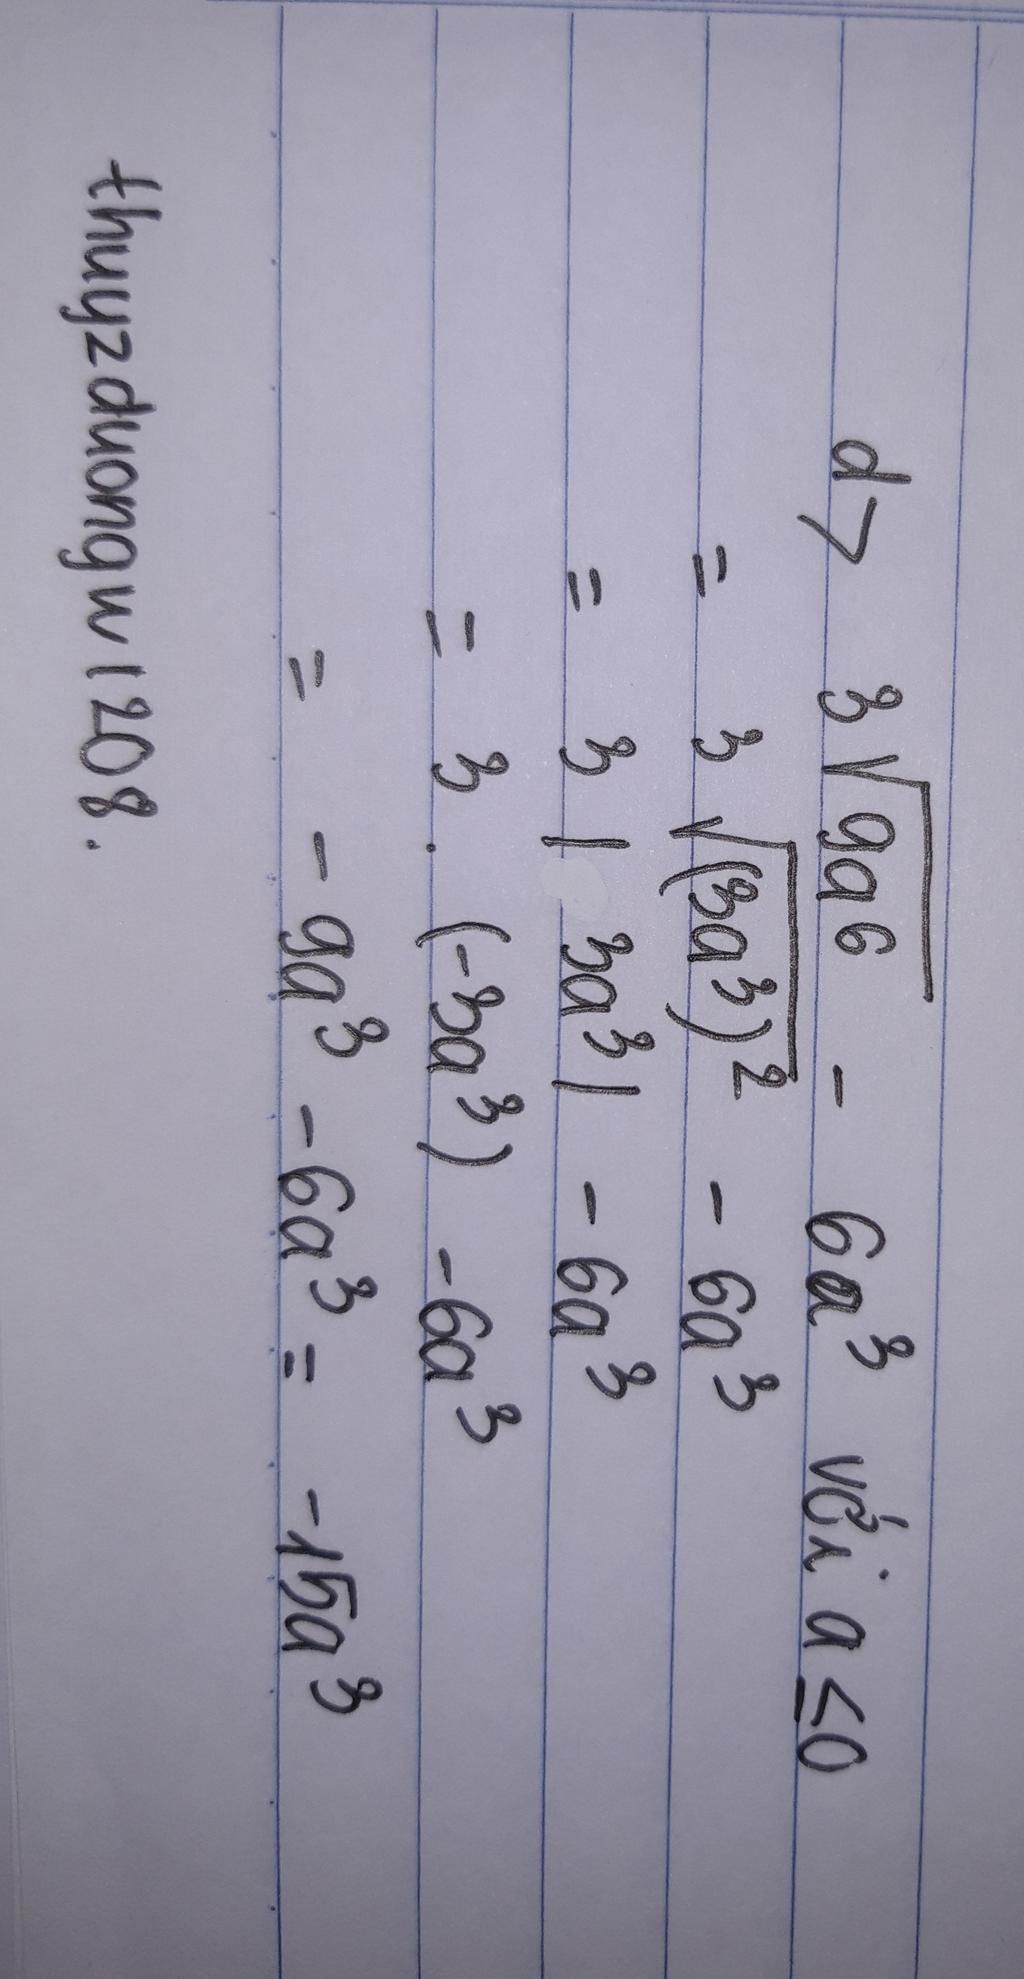 d> 3√9a⁶ - 6a³ với a ≤ 0
= 3√(3a³)² - 6a³
= 3 | 3a³ | - 6a³
= 3 . (-3a³) - 6a³
= - 9a³ - 6a³ = -15a³
thuyzduongw1208.